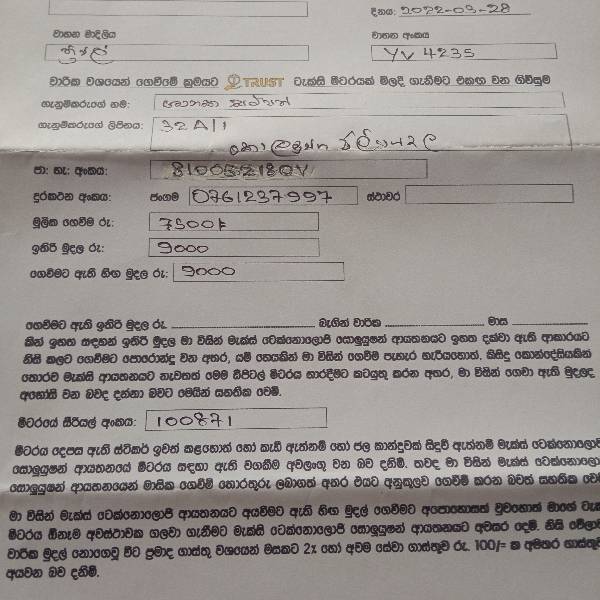 දිනය: 2022-03-28
වාහන මාදිලිය වාහන අංකය
ත්‍රීවීල් YV 4235
වාරික වශයෙන් ගෙවීමේ ක්‍රමයට TRUST ටැක්සි මීටරයක් මිලදී ගැනීමට එකඟ වන ගිවිසුම
ගැනුම්කරුගේ නම:
ගැනුම්කරුගේ ලිපිනය: 32A/1
ජා: හැ: අංකය:
දුරකථන අංකය: ජංගම 0761237997 ස්ථාවර
මූලික ගෙවීම රු: 7500/-
ඉතිරි මුදල රු: 9000
ගෙවීමට ඇති හිඟ මුදල රු: 9000
ගෙවීමට ඇති ඉතිරි මුදල රු. බැගින් වාරික මාස
කින් ඉහත සඳහන් ඉතිරි මුදල මා විසින් මැක්ස් ටෙක්නොලොජි සොලූෂන් ආයතනයට ඉහත දක්වා ඇති ආකාරයට
නිසි කලට ගෙවීමට පොරොන්දු වන අතර, යම් හෙයකින් මා විසින් ගෙවීම් පැහැර හැරියහොත්, කිසිදු කොන්දේසියකින්
තොරව මැක්සි ආයතනයට නැවතත් මෙම ඩිජිටල් මීටරය භාරදීමට කටයුතු කරන අතර, මා විසින් ගෙවා ඇති මුදලද
අහෝසි වන බවද දන්නා බවට මෙයින් සහතික වෙමි.
මීටරයේ සීරියල් අංකය: 100871
මීටරය දෙපස ඇති ස්ටිකර් ඉවත් කළහොත් හෝ කැඩී ඇත්නම් හෝ ජල කාන්දුවක් සිදුවී ඇත්නම් මැක්ස් ටෙක්නොලොජි
සොලූෂන් ආයතනයේ මීටරය සඳහා ඇති වගකීම අවලංගු වන බව දනිමි. තවද මා විසින් මැක්ස් ටෙක්නොලො
සොලූෂන් ආයතනයෙන් මාසික ගෙවීම් තොරතුරු ලබාගත් අතර එයට අනුකූලව ගෙවීම් කරන බවත් සහතික වෙමි
මා විසින් මැක්ස් ටෙක්නොලොජි ආයතනයට අයවීමට ඇති හිඟ මුදල් ගෙවීමට අපොහොසත් වුවහොත් මාගේ ටැ
මීටරය ඕනෑම අවස්ථාවක ගලවා ගැනීමට මැක්සි ටෙක්නොලොජි සොලූෂන් ආයතනයට අවසර දෙමි. නිසි වේලා
වාරික මුදල් නොගෙවූ විට ප්‍රමාද ගාස්තු වශයෙන් මසකට 2% හෝ අවම සේවා ගාස්තුව රු. 100/= ක අමතර ගාස්තු
අයවන බව දනිමි.